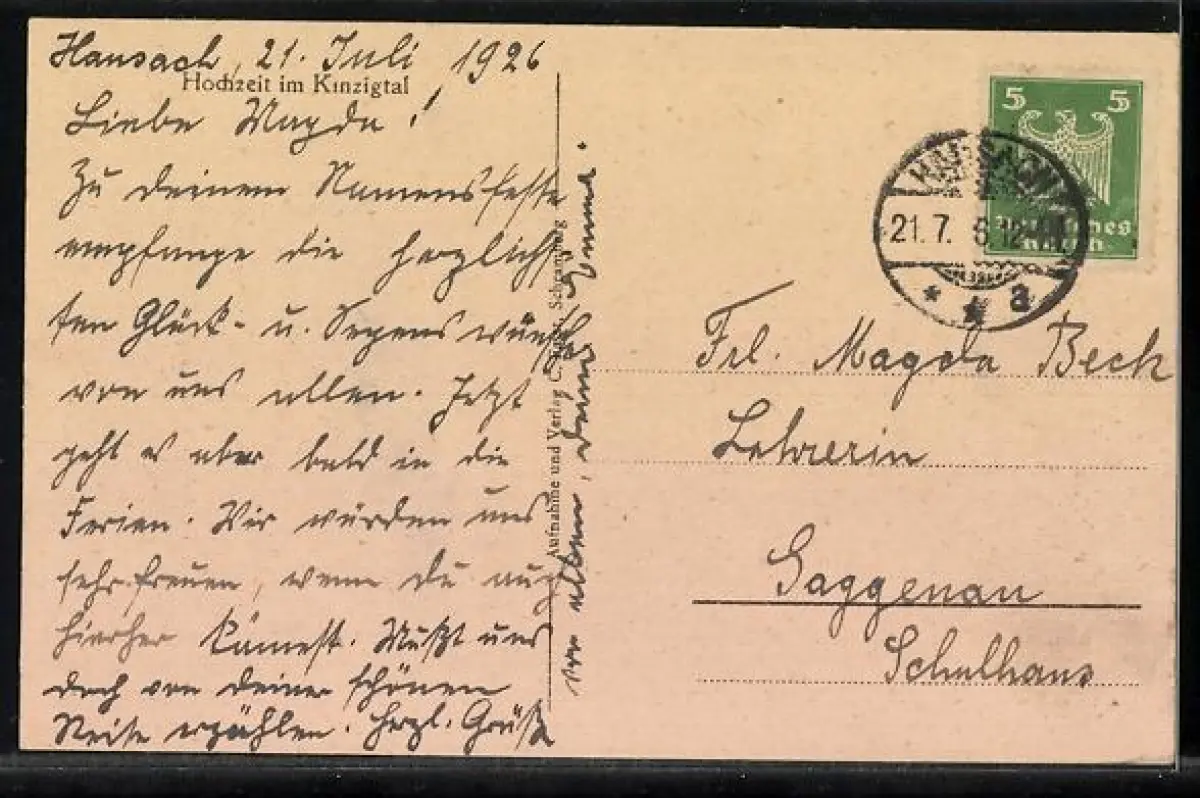 Hausach, 21. Juli 1926
Hochzeit im Kinzigtal
Liebe Magda!
Zu Deinem Namensfeste
empfange die herzlich-
sten Glück- u. Segenswünsche
von uns allen. Jetzt
geht es aber bald in die
Ferien. Wir würden uns
sehr freuen, wenn Du auch
hierher kämest. Mußt uns
doch von Deiner schönen
Reise erzählen. Herzl. Grüße
von allen, Deine
Aufnahme und Verlag C. Schramberg
5 5
Deutsches
Reich
HAUSACH
21.7. 6 12
* * a
Frl. Magda Bech
Lehrerin
Gaggenau
Schulhaus